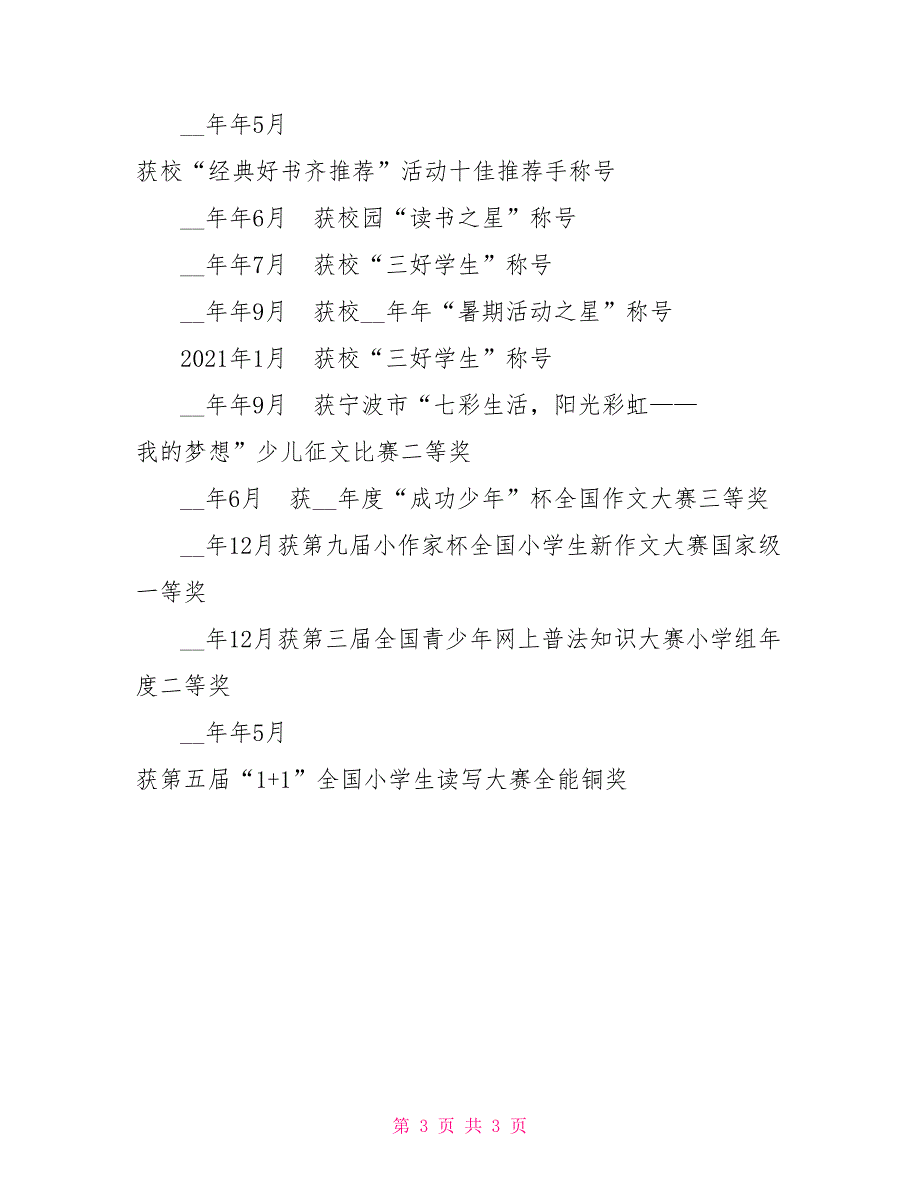 __年年5月
获校“经典好书齐推荐”活动十佳推荐手称号
__年年6月　获校园“读书之星”称号
__年年7月　获校“三好学生”称号
__年年9月　获校__年年“暑期活动之星”称号
2021年1月　获校“三好学生”称号
__年年9月　获宁波市“七彩生活，阳光彩虹——
我的梦想”少儿征文比赛二等奖
__年6月　获__年度“成功少年”杯全国作文大赛三等奖
__年12月获第九届小作家杯全国小学生新作文大赛国家级
一等奖
__年12月获第三届全国青少年网上普法知识大赛小学组年
度二等奖
__年年5月
获第五届“1+1”全国小学生读写大赛全能铜奖
第 3 页 共 3 页